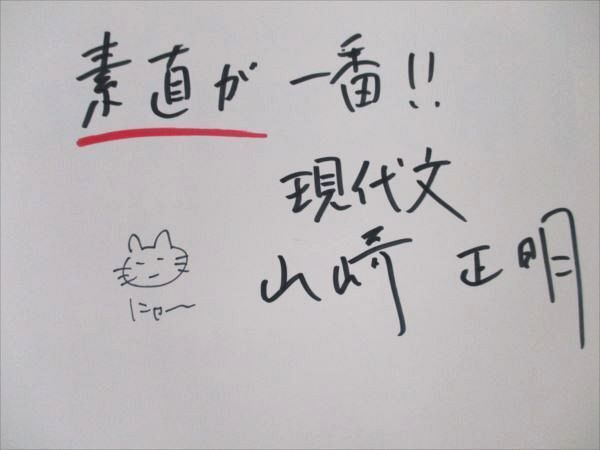 素直が一番!!
現代文
山崎 正明
にゃ〜